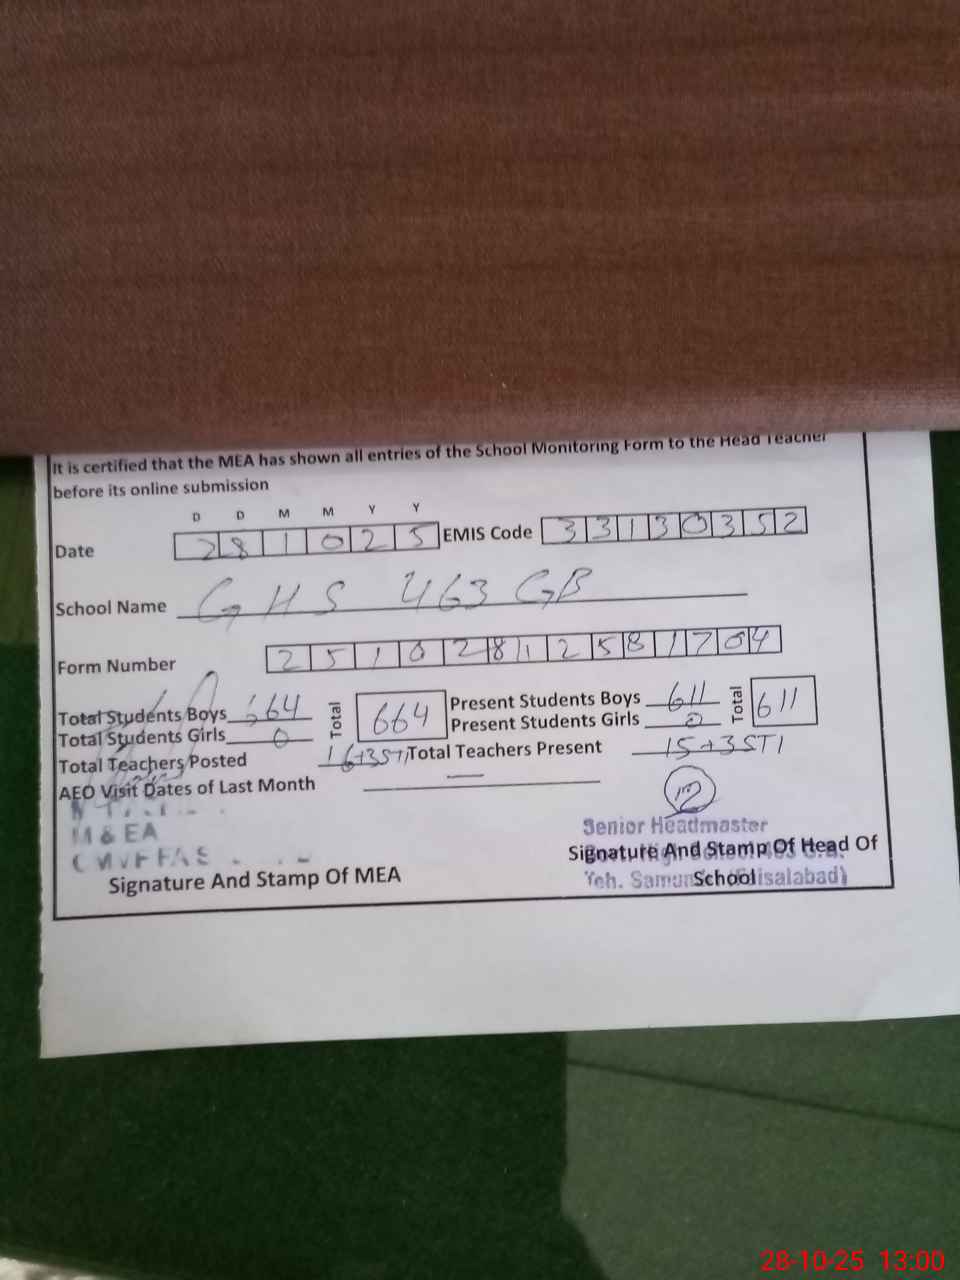 It is certified that the MEA has shown all entries of the School Monitoring Form to the Head Teacher
before its online submission
D D M M Y Y
Date 281025 EMIS Code 33130352
School Name GHS 463 GB
Form Number 25102812581704
Total Students Boys 664 Total 664 Present Students Boys 611 Total 611
Total Students Girls 0 Present Students Girls 0
Total Teachers Posted 16+3STI Total Teachers Present 15+3STI
AEO Visit Dates of Last Month —
M & EA
Senior Headmaster
Signature And Stamp Of MEA
Signature And Stamp Of Head Of
School
28-10-25 13:00